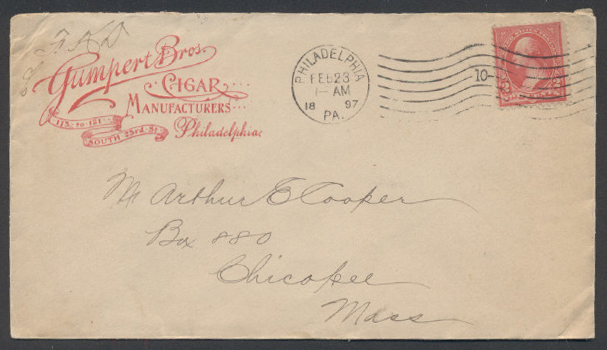 Gumpert Bros.
Cigar
Manufacturers
115 to 121
South 23rd St
Philadelphia
PHILADELPHIA
FEB 23
1-AM
18 97
PA.
10
2 2
Mr Arthur E Cooper
Box 880
Chicopee
Mass